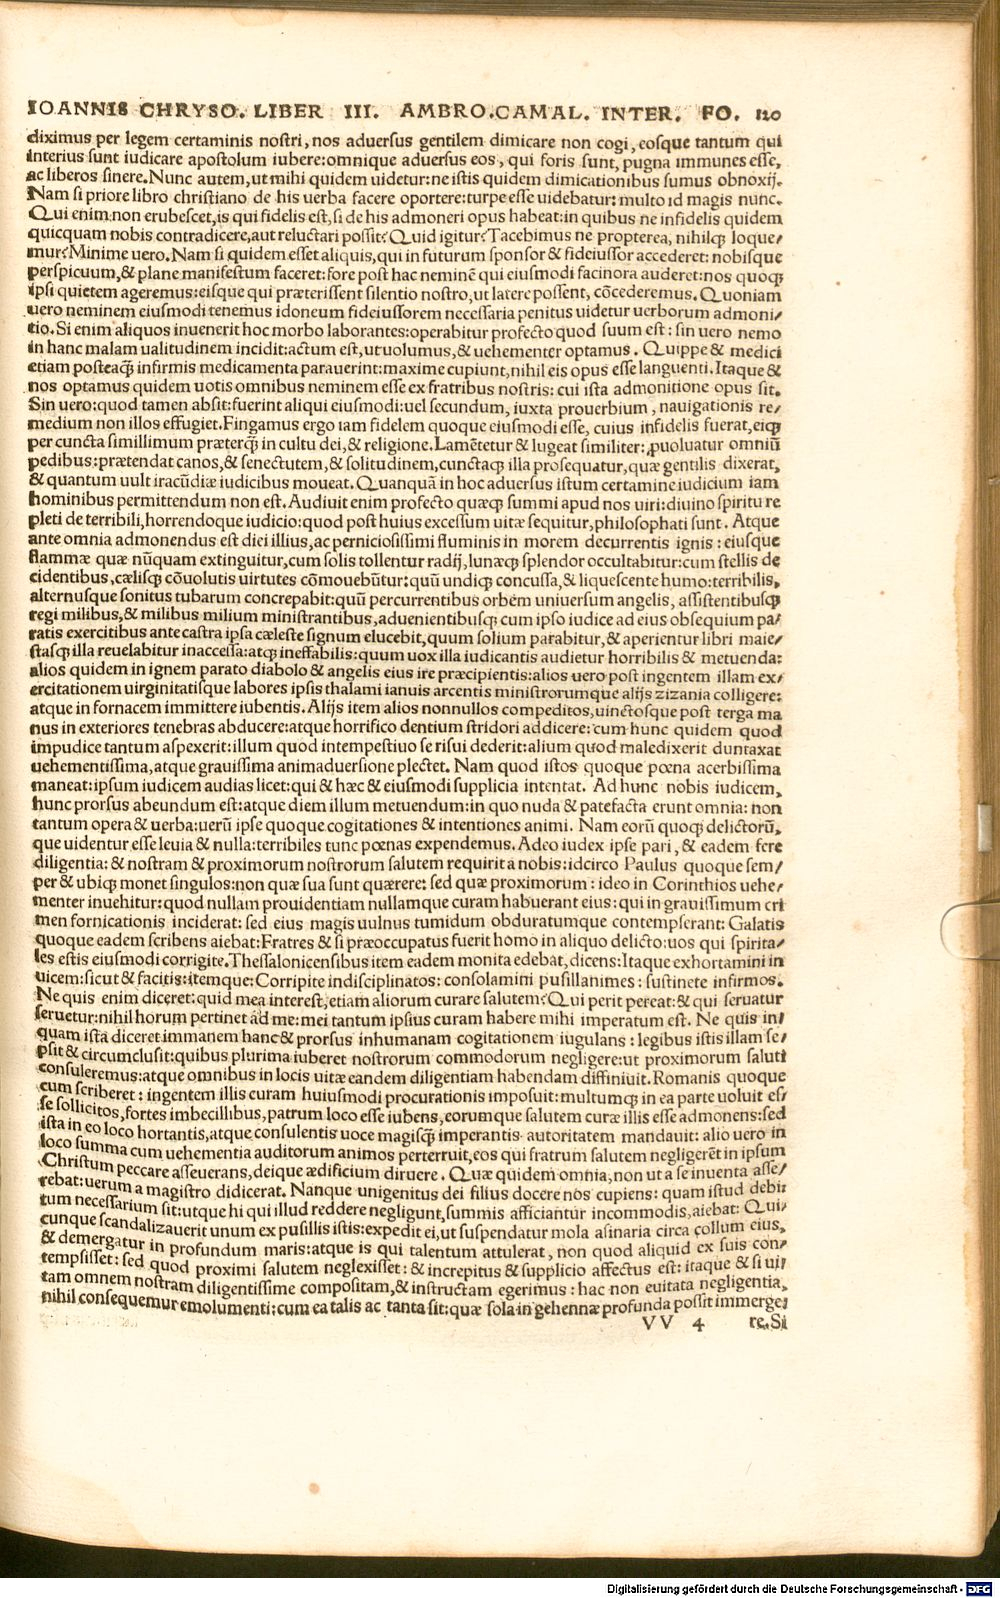 IOANNIS CHRYSO. LIBER III. AMBRO.CAMAL. INTER. FO. 120
diximus per legem certaminis nostri, nos aduersus gentilem dimicare non cogi, eosque tantum qui
interius sunt iudicare apostolum iubere:omnique aduersus eos, qui foris sunt, pugna immunes esse,
ac liberos sinere.Nunc autem,ut mihi quidem uidetur:ne istis quidem dimicationibus sumus obnoxij.
Nam si priore libro christiano de his uerba facere oportere:turpe esse uidebatur: multo id magis nunc.
Qui enim non erubescet,is qui fidelis est,si de his admoneri opus habeat:in quibus ne infidelis quidem
quicquam nobis contradicere,aut reluctari possit?Quid igitur?Tacebimus ne propterea, nihilqꝫ loque/
mur?Minime uero.Nam si quidem esset aliquis,qui in futurum sponsor & fideiussor accederet: nobisque
perspicuum,& plane manifestum faceret:fore post hac neminē qui eiusmodi facinora auderet:nos quoqꝫ
ipsi quietem ageremus:eisque qui præterissent silentio nostro,ut latere possent, cōcederemus. Quoniam
uero neminem eiusmodi tenemus idoneum fideiussorem necessaria penitus uidetur uerborum admoni/
tio.Si enim aliquos inuenerit hoc morbo laborantes:operabitur profecto quod suum est: sin uero nemo
in hanc malam ualitudinem incidit:actum est,ut uolumus,& uehementer optamus. Quippe & medici
etiam posteaqꝫ infirmis medicamenta parauerint:maxime cupiunt,nihil eis opus esse languenti. Itaque &
nos optamus quidem uotis omnibus neminem esse ex fratribus nostris: cui ista admonitione opus sit.
Sin uero:quod tamen absit:fuerint aliqui eiusmodi:uel secundum, iuxta prouerbium, nauigationis re/
medium non illos effugiet.Fingamus ergo iam fidelem quoque eiusmodi esse, cuius infidelis fuerat,eiqꝫ
per cuncta simillimum præterqꝫ in cultu dei,& religione.Lamētetur & lugeat similiter: ꝓuoluatur omniū
pedibus:prætendat canos,& senectutem,& solitudinem,cunctaqꝫ illa prosequatur,quæ gentilis dixerat,
& quantum uult iracūdiæ iudicibus moueat. Quanquā in hoc aduersus istum certamine iudicium iam
hominibus permittendum non est. Audiuit enim profecto quæqꝫ summi apud nos uiri:diuino spiritu re
pleti de terribili,horrendoque iudicio:quod post huius excessum uitæ sequitur,philosophati sunt. Atque
ante omnia admonendus est diei illius,ac perniciosissimi fluminis in morem decurrentis ignis: eiusque
flammæ quæ nūquam extinguitur,cum solis tollentur radij,lunæqꝫ splendor occultabitur:cum stellis de
cidentibus,cælisqꝫ cōuolutis uirtutes cōmouebūtur:quū undiqꝫ concussa,& liquescente humo:terribilis,
alternusque sonitus tubarum concrepabit:quū percurrentibus orbem uniuersum angelis, assistentibusqꝫ
regi milibus,& milibus milium ministrantibus,aduenientibusqꝫ cum ipso iudice ad eius obsequium pa/
ratis exercitibus ante castra ipsa cæleste signum elucebit,quum solium parabitur,& aperientur libri maie/
stasqꝫ illa reuelabitur inaccessa:atqꝫ ineffabilis:quum uox illa iudicantis audietur horribilis & metuenda:
alios quidem in ignem parato diabolo & angelis eius ire præcipientis:alios uero post ingentem illam ex/
ercitationem uirginitatisque labores ipsis thalami ianuis arcentis ministrorumque alijs zizania colligere:
atque in fornacem immittere iubentis. Alijs item alios nonnullos compeditos,uinctosque post terga ma
nus in exteriores tenebras abducere:atque horrifico dentium stridori addicere: cum hunc quidem quod
impudice tantum aspexerit:illum quod intempestiuo se risui dederit:alium quod maledixerit duntaxat
uehementissima,atque grauissima animaduersione plectet. Nam quod istos quoque pœna acerbissima
maneat:ipsum iudicem audias licet:qui & hæc & eiusmodi supplicia intentat. Ad hunc nobis iudicem,
hunc prorsus abeundum est:atque diem illum metuendum:in quo nuda & patefacta erunt omnia: non
tantum opera & uerba:uerū ipse quoque cogitationes & intentiones animi. Nam eorū quoqꝫ delictorū,
que uidentur esse leuia & nulla:terribiles tunc pœnas expendemus. Adeo iudex ipse pari, & eadem fere
diligentia: & nostram & proximorum nostrorum salutem requirit a nobis:idcirco Paulus quoque sem/
per & ubiqꝫ monet singulos:non quæ sua sunt quærere: sed quæ proximorum: ideo in Corinthios uehe/
menter inuehitur:quod nullam prouidentiam nullamque curam habuerant eius: qui in grauissimum cri
men fornicationis inciderat: sed eius magis uulnus tumidum obduratumque contempserant: Galatis
quoque eadem scribens aiebat:Fratres & si præoccupatus fuerit homo in aliquo delicto:uos qui spirita/
les estis eiusmodi corrigite.Thessalonicensibus item eadem monita edebat,dicens:Itaque exhortamini in
uicem:sicut & facitis:itemque:Corripite indisciplinatos: consolamini pusillanimes: sustinete infirmos.
Ne quis enim diceret:quid mea interest,etiam aliorum curare salutem?Qui perit pereat:& qui seruatur
seruetur:nihil horum pertinet ad me:mei tantum ipsius curam habere mihi imperatum est. Ne quis in/
quam ista diceret immanem hanc & prorsus inhumanam cogitationem iugulans: legibus istis illam se/
psit & circumclusit:quibus plurima iuberet nostrorum commodorum negligere:ut proximorum saluti
consuleremus:atque omnibus in locis uitæ eandem diligentiam habendam diffiniuit. Romanis quoque
cum scriberet: ingentem illis curam huiusmodi procurationis imposuit:multumqꝫ in ea parte uoluit es/
se sollicitos,fortes imbecillibus,patrum loco esse iubens,eorumque salutem curæ illis esse admonens:sed
ista in eo loco hortantis,atque consulentis uoce magisqꝫ imperantis autoritatem mandauit: alio uero in
loco summa cum uehementia auditorum animos perterruit,eos qui fratrum salutem negligerēt in ipsum
Christum peccare asseuerans,deique ædificium diruere. Quæ quidem omnia,non ut a se inuenta asse/
rebat:uerum a magistro didicerat. Nanque unigenitus dei filius docere nos cupiens: quam istud debi
tum necessarium sit:utque hi qui illud reddere negligunt,summis afficiantur incommodis,aiebat: Qui/
cunque scandalizauerit unum ex pusillis istis:expedit ei,ut suspendatur mola asinaria circa collum eius,
& demergatur in profundum maris:atque is qui talentum attulerat, non quod aliquid ex suis con/
tempsisset: sed quod proximi salutem neglexisset: & increpitus & supplicio affectus est: itaque & si ui/
tam omnem nostram diligentissime compositam,& instructam egerimus: hac non euitata negligentia,
nihil consequemur emolumenti:cum ea talis ac tanta sit:quæ sola in gehennæ profunda possit immerge/
VV 4 re.Si
Digitalisierung gefördert durch die Deutsche Forschungsgemeinschaft - DFG